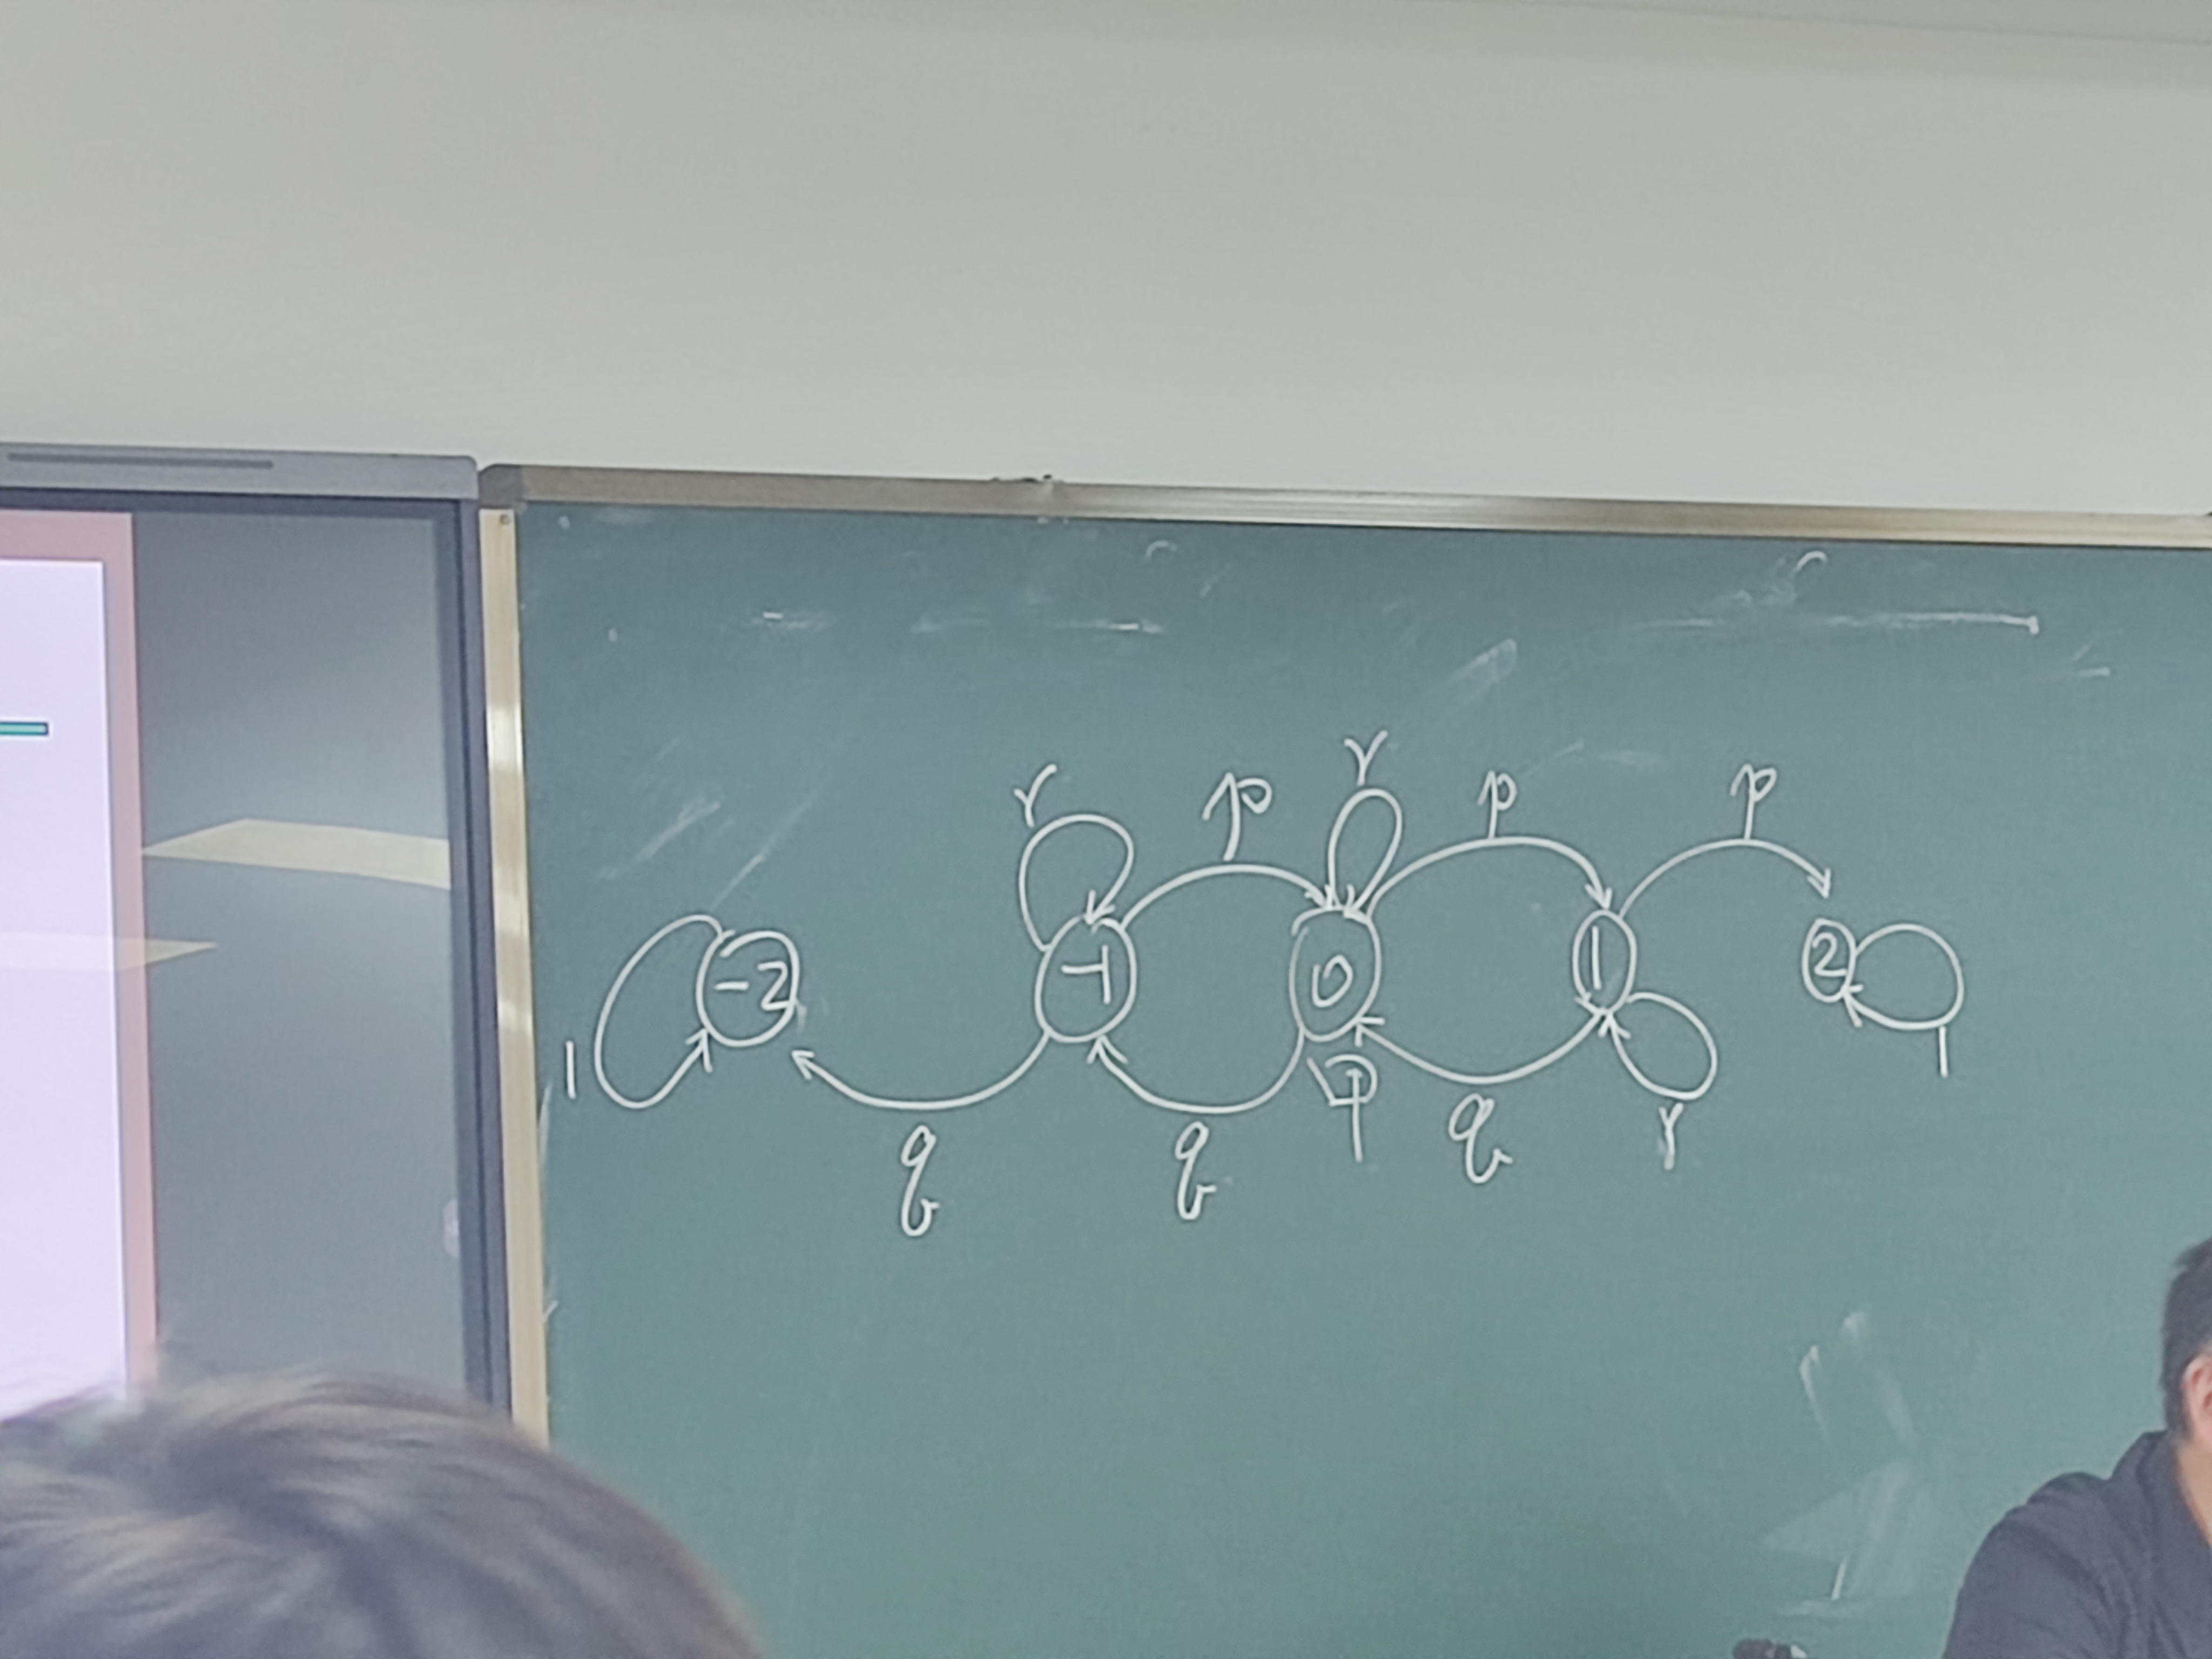 r p r p p
1 -2 -1 0 1 2 1
q q q r